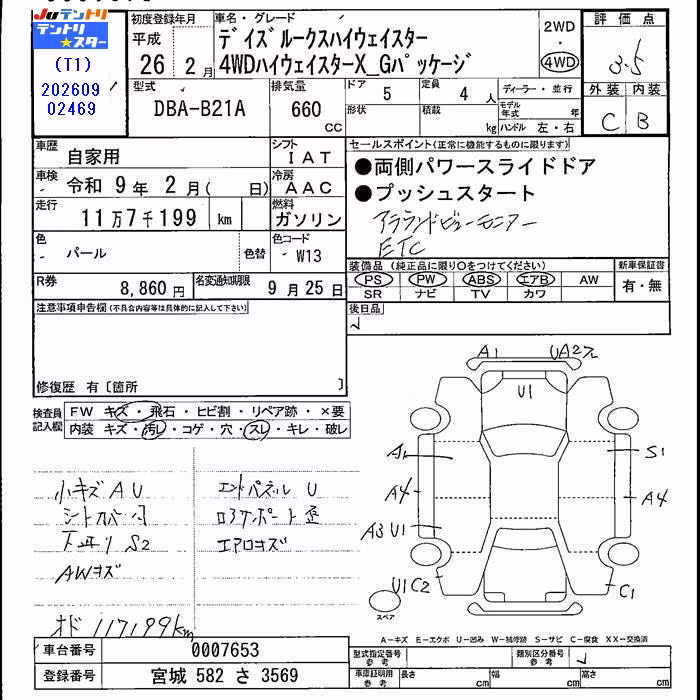 JUテントリ
テントリ★スター
(T1)
202609
02469
初度登録年月
平成
26 2月
車名・グレード
デイズルークスハイウェイスター
4WDハイウェイスターX_Gパッケージ
2WD
・
4WD
評価点
3.5
外装 内装
C B
型式
DBA-B21A
排気量
660
cc
ドア
5
定員
4人
形状
積載
kg
ディーラー・並行
モデル年式 年
ハンドル 左・右
車歴 自家用
シフト IAT
車検 令和 9年 2月( 日)
冷房 AAC
走行 11万7千199 km
燃料 ガソリン
色 パール 色替
色コード W13
R券 8,860円
名変通知期限 9月25日
セールスポイント(正常に機能するものに限ります)
●両側パワースライドドア
●プッシュスタート
アラウンドビューモニター
ETC
装備品(純正品に限り○をつけてください)
PS PW ABS エアB AW
SR ナビ TV カワ
新車保証書
有・無
後日品
注意事項申告欄(不具合内容等は具体的に記入して下さい)
修復歴 有〔箇所 〕
検査員記入欄
FW キズ・飛石・ヒビ割・リペア跡・×要
内装 キズ・汚レ・コゲ・穴・スレ・キレ・破レ
小キズAU エンドパネルU
シートカバー付
下廻りS2 エアロキズ
AWキズ
オド 117199km
A1 UA2
U1
A1 S1
A4 A4
A3 U1
U1 C2 C1
スペア
A-キズ E-エクボ U-凹み W-補修跡 S-サビ C-腐食 XX-交換済
車台番号 0007653
登録番号 宮城 582 さ 3569
型式指定番号 参考
類別区分番号 参考
車庫証明用 参考
長さ cm 幅 cm 高さ cm